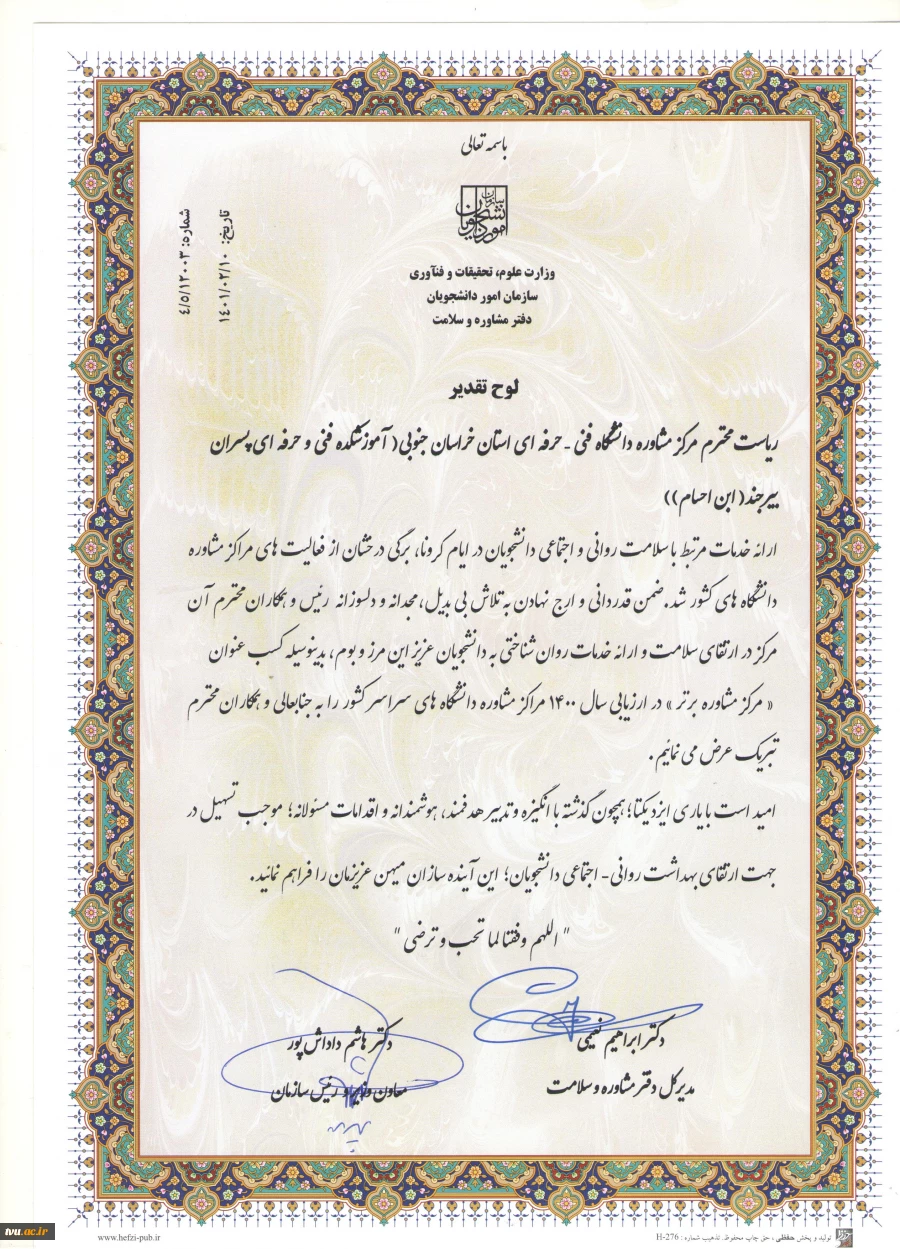 باسمه تعالی
سازمان امور دانشجویان
وزارت علوم، تحقیقات و فنآوری
سازمان امور دانشجویان
دفتر مشاوره و سلامت
تاریخ: ۱۴۰۱/۰۲/۱۰
شماره: ۴/۵/۱۲۰۰۳
لوح تقدیر
ریاست محترم مرکز مشاوره دانشگاه فنی - حرفه ای استان خراسان جنوبی( آموزشکده فنی و حرفه ای پسران
بیرجند( ابن احسام))
ارائه خدمات مرتبط با سلامت روانی و اجتماعی دانشجویان در ایام کرونا، برگی درخشان از فعالیت های مراکز مشاوره
دانشگاه های کشور شد. ضمن قدردانی و ارج نهادن به تلاش بی بدیل، مجدانه و دلسوزانه رئیس و همکاران محترم آن
مرکز در ارتقای سلامت و ارائه خدمات روان شناختی به دانشجویان عزیز این مرز و بوم، بدینوسیله کسب عنوان
« مرکز مشاوره برتر » در ارزیابی سال ۱۴۰۰ مراکز مشاوره دانشگاه های سراسر کشور را به جنابعالی و همکاران محترم
تبریک عرض می نمائیم.
امید است با یاری ایزد یکتا؛ همچون گذشته با انگیزه و تدبیر هدفمند، هوشمندانه و اقدامات مسئولانه؛ موجب تسهیل در
جهت ارتقای بهداشت روانی- اجتماعی دانشجویان؛ این آینده سازان میهن عزیزمان را فراهم نمائید.
" اللهم وفقنا لما تحب و ترضی "
دکتر ابراهیم نعیمی
مدیرکل دفتر مشاوره و سلامت
دکتر هاشم داداش پور
معاون وزیر و رئیس سازمان
tvu.ac.ir
www.hefzi-pub.ir
تولید و پخش حفظی ، حق چاپ محفوظ. تذهیب شماره : H-276